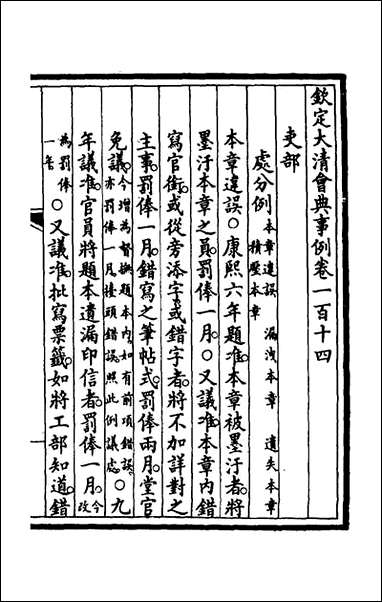 欽定大清會典事例卷一百十四
吏部
處分例 本章違誤 漏洩本章 遺失本章
積壓本章
本章違誤○康熙六年題準本章被墨汙者將
墨汙本章之員罰俸一月○又議準本章內錯
寫官銜或從旁添字或錯字者將不加詳對之
主事罰俸一月錯寫之筆帖式罰俸兩月堂官
免議今增為督撫題本內如有前項錯誤
亦罰俸一月擡頭錯誤照此例議處○九
年議準官員將題本遺漏印信者罰俸一月今改
為罰俸
一年○又議準批寫票籤如將工部知道錯